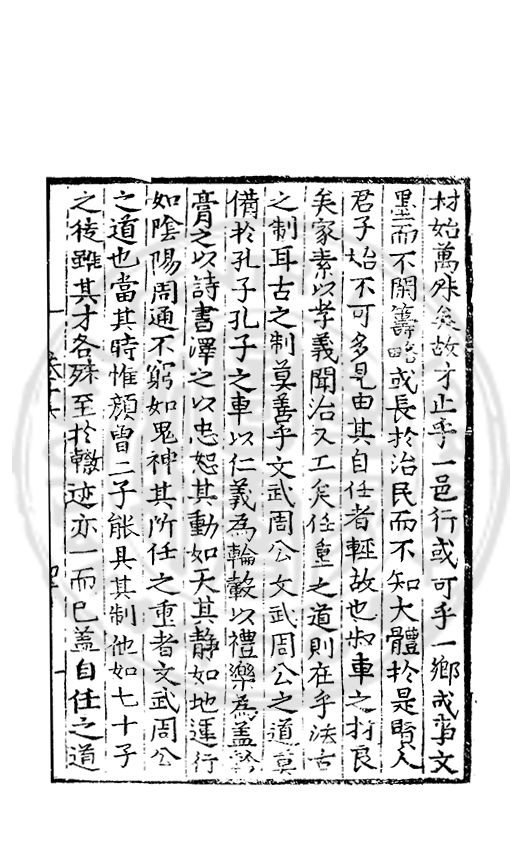 材始萬殊矣故才止乎一邑行或可乎一鄉或事文
墨而不閑籌略或長於治民而不知大體於是賢人
君子始不可多見由其自任者輕故也叔車之材良
矣家素以孝義聞治又工矣任重之道則在乎法古
之制耳古之制莫善乎文武周公文武周公之道莫
備於孔子孔子之車以仁義為輪轂以禮樂為蓋軫
膏之以詩書澤之以忠恕其動如天其靜如地運行
如陰陽周通不窮如鬼神其所任之重者文武周公
之道也當其時惟顏曾二子能具其制他如七十子
之徒雖其才各殊至於轍迹亦一而已蓋自任之道